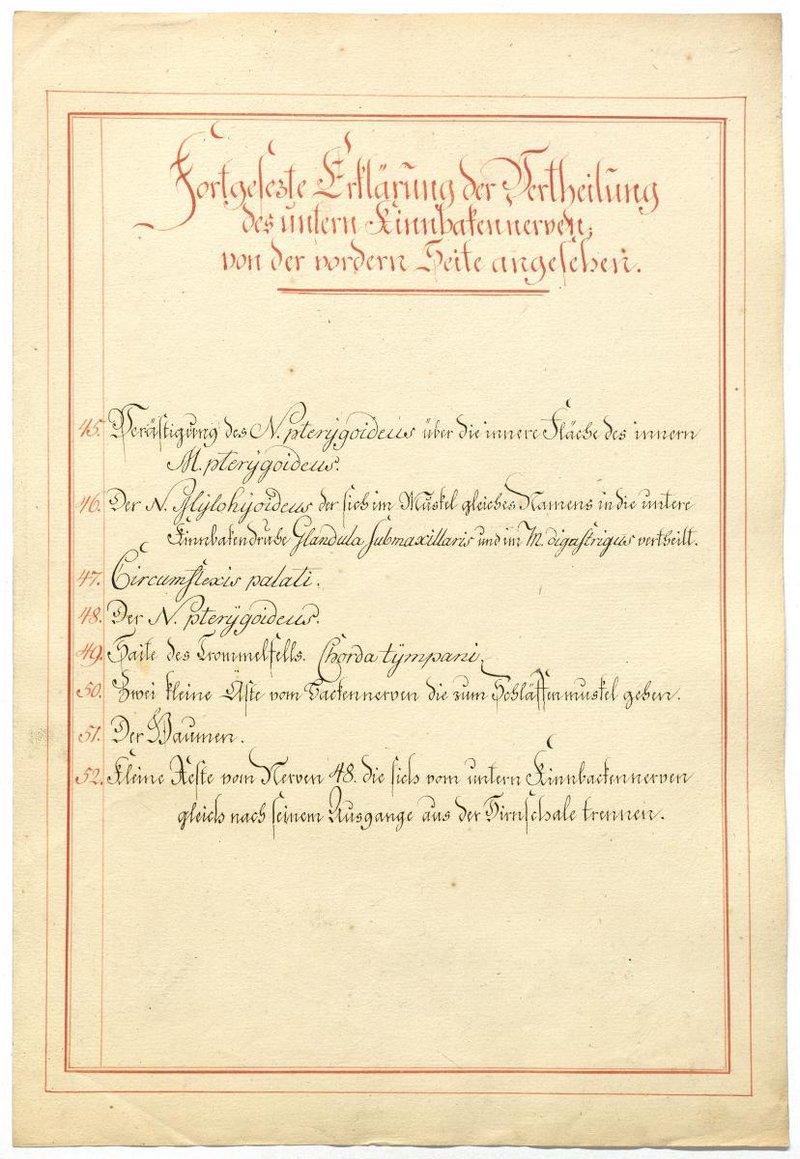 Fortgesezte Erklärung der Vertheilung
des untern Kinnbakennerven,
von der vordern Seite angesehen.
45. Verästigung des N. pterÿgoideus über die innere Fläche des innern
M. pterÿgoideus.
46. Der N. Mÿlohÿoideus der sich im Muskel gleiches Namens in die untere
Kinnbakendrühe Glandula submaxillaris und im M. digastrigus vertheilt.
47. Circumflexis palati.
48. Der N. pterÿgoideus.
49. Saite des Trommelfells. Chorda tÿmpani.
50. Zwei kleine Äste vom Backennerven die zum Schläffenmuskel gehen.
51. Der Gaumen.
52. Kleine Aeste vom Nerven 48. die sich vom untern Kinnbackennerven
gleich nach seinem Ausgange aus der Hirnschale trennen.